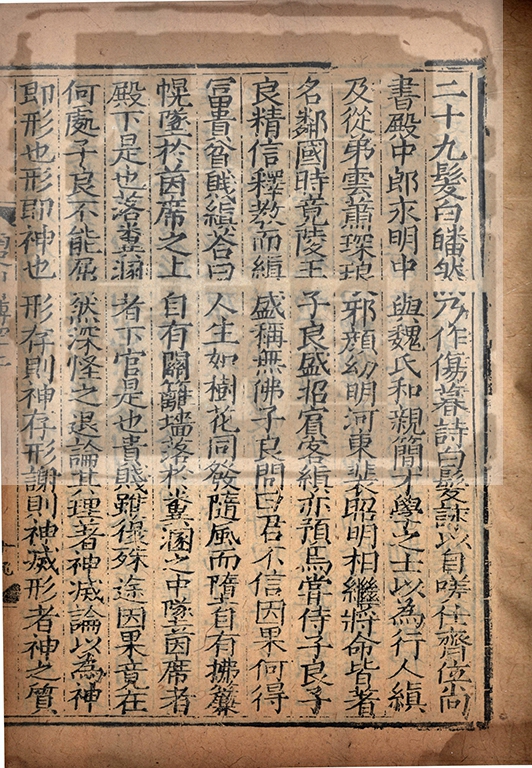 二十九髮白皤然乃作傷暮詩白髮詠以自嗟仕齊位尚
書殿中郎永明中與魏氏和親簡才學之士以為行人縝
及從弟雲蕭琛琅邪顏幼明河東裴昭明相繼將命皆著
名鄰國時竟陵王子良盛招賓客縝亦預焉嘗侍子良子
良精信釋教而縝盛稱無佛子良問曰君不信因果何得
富貴貧賤縝荅曰人生如樹花同發隨風而墮自有拂簾
幌墜於茵席之上自有關籬墻落於糞溷之中墜茵席者
殿下是也落糞溷者下官是也貴賤雖復殊途因果竟在
何處子良不能屈然深怪之退論其理著神滅論以為神
即形也形即神也形存則神存形謝則神滅形者神之質